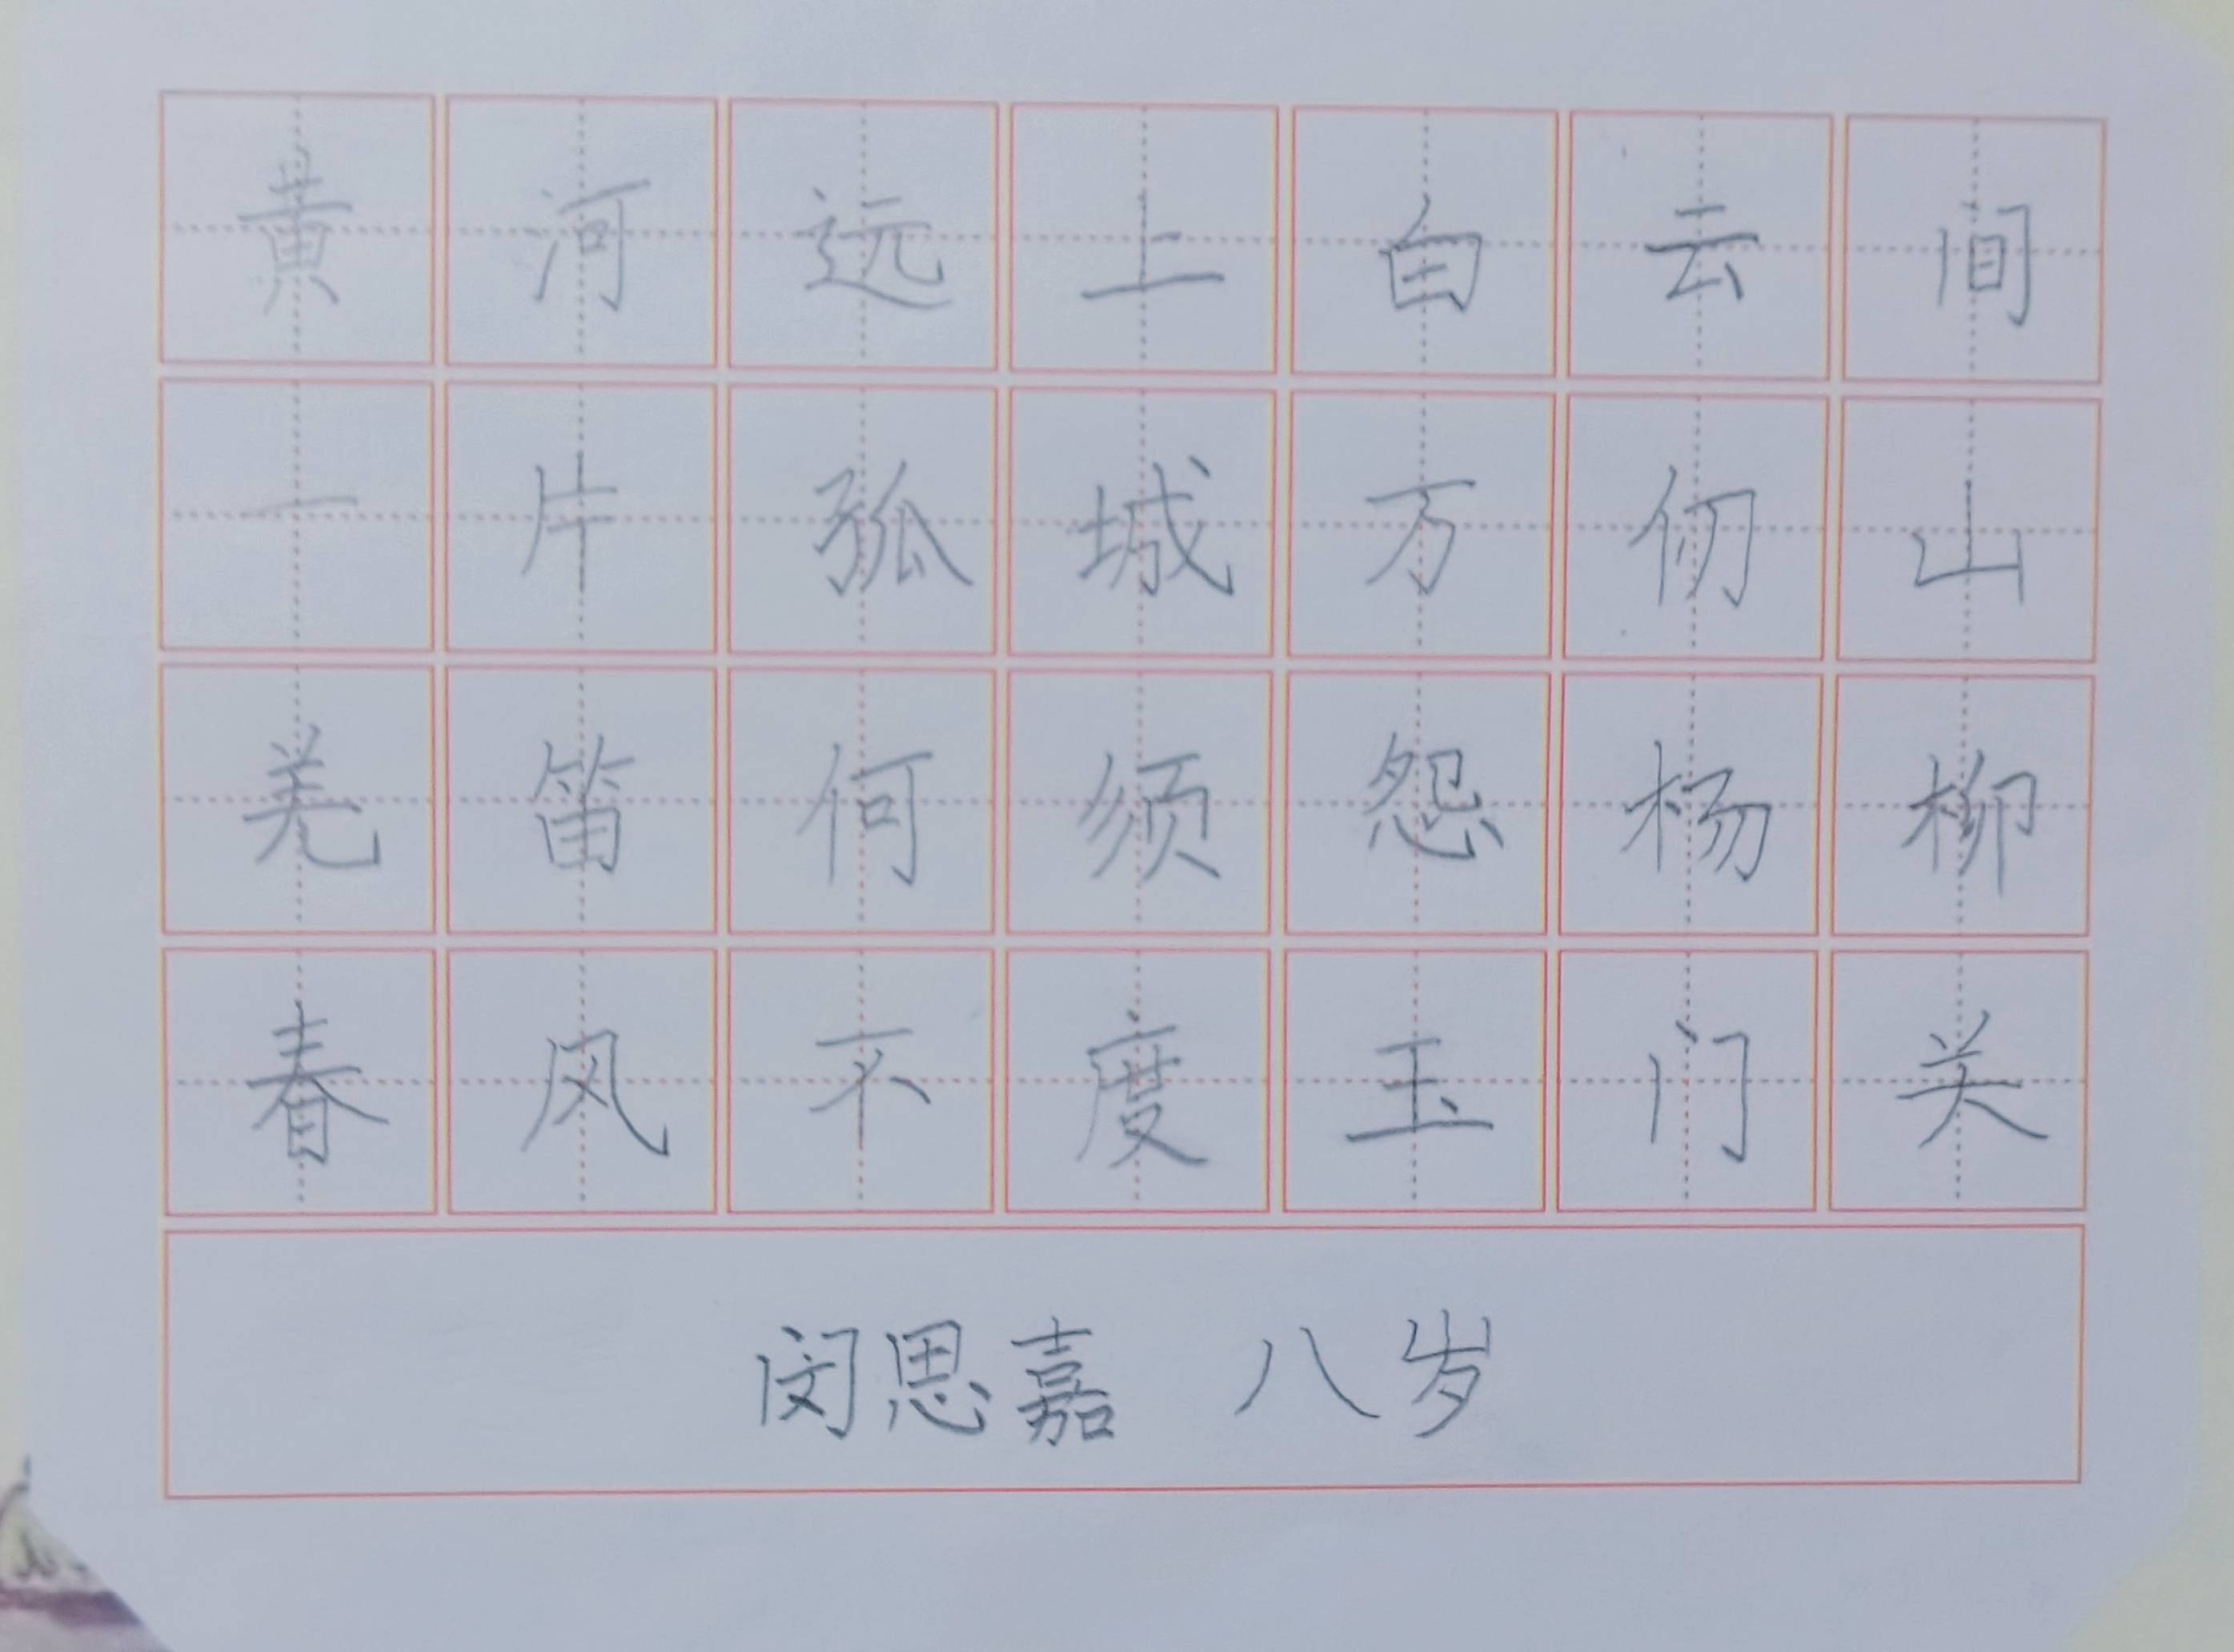 黄河远上白云间
一片孤城万仞山
羌笛何须怨杨柳
春风不度玉门关
闵思嘉 八岁